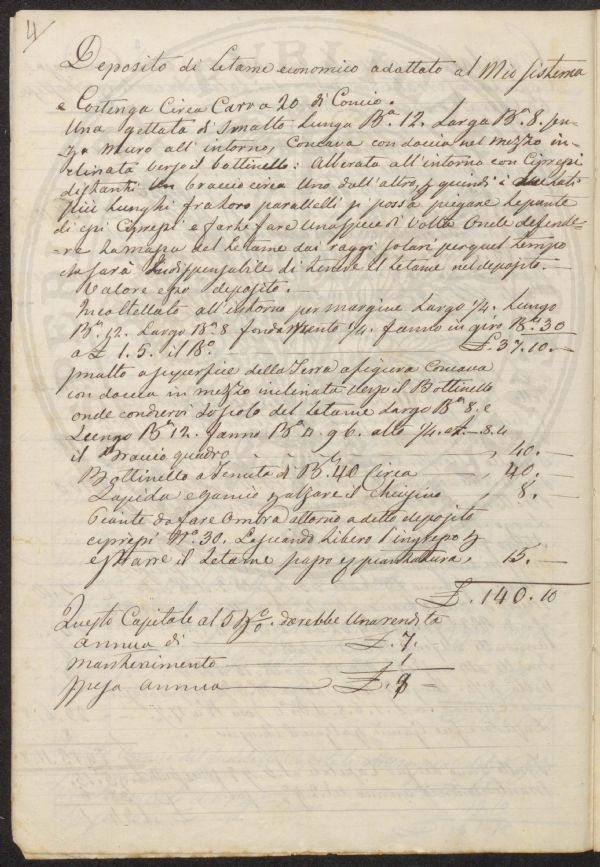 4/
Deposito di letame economico adattato al Mio sistema
e Contenga Circa Carra 20 di Concio.
Una gettata di smalto Lunga Ba. 12. Larga Ba. 8. sen-
za muro all'intorno, Concava con doccia nel mezzo in-
clinata verso il bottinello: Alberata all'intorno con Cipressi
distanti un braccio circa Uno dall'altro, quindi i due lati
più Lunghi fra loro parallelli si possa piegare le punte
di essi Cipressi e farle fare Una specie di Volta Onde difende-
=re la massa del Letame dai raggi solari per quel tempo
che sarà indispensabile di tenere il Letame nel deposito.
Valore esso deposito.
Incoltellato all'intorno per margine Largo 1/4. Lungo
Ba. 12. Largo Ba. 8 fondamento 1/4. fanno in giro Ba. 30
a £ 1.5. il Bo. £. 37.10.—
smalto a superficie della Terra a figura Concava
con doccia in mezzo inclinata verso il Bottinello
onde condurvi lo scolo del Letame Largo Ba. 8. e
Lungo Ba. 12. fanno Ba. q. 96. alto 1/4. a £ —.8.4
il Braccio quadro " 40.—
Bottinello a Tenuta di Bi. 40 Circa " 40.—
Lapida e gancio p. alzare il chiusino " 8.—
Piante da fare Ombra attorno a detto deposito
cipressi No. 30. Lasciando Libero l'ingresso p.
estrarre il Letame posso e piantatura, 15.—
£. 140.10
Questo Capitale al 5 p%. darebbe Una rendita
annua di £. 7.
mantenimento 1
spesa annua £. 8=